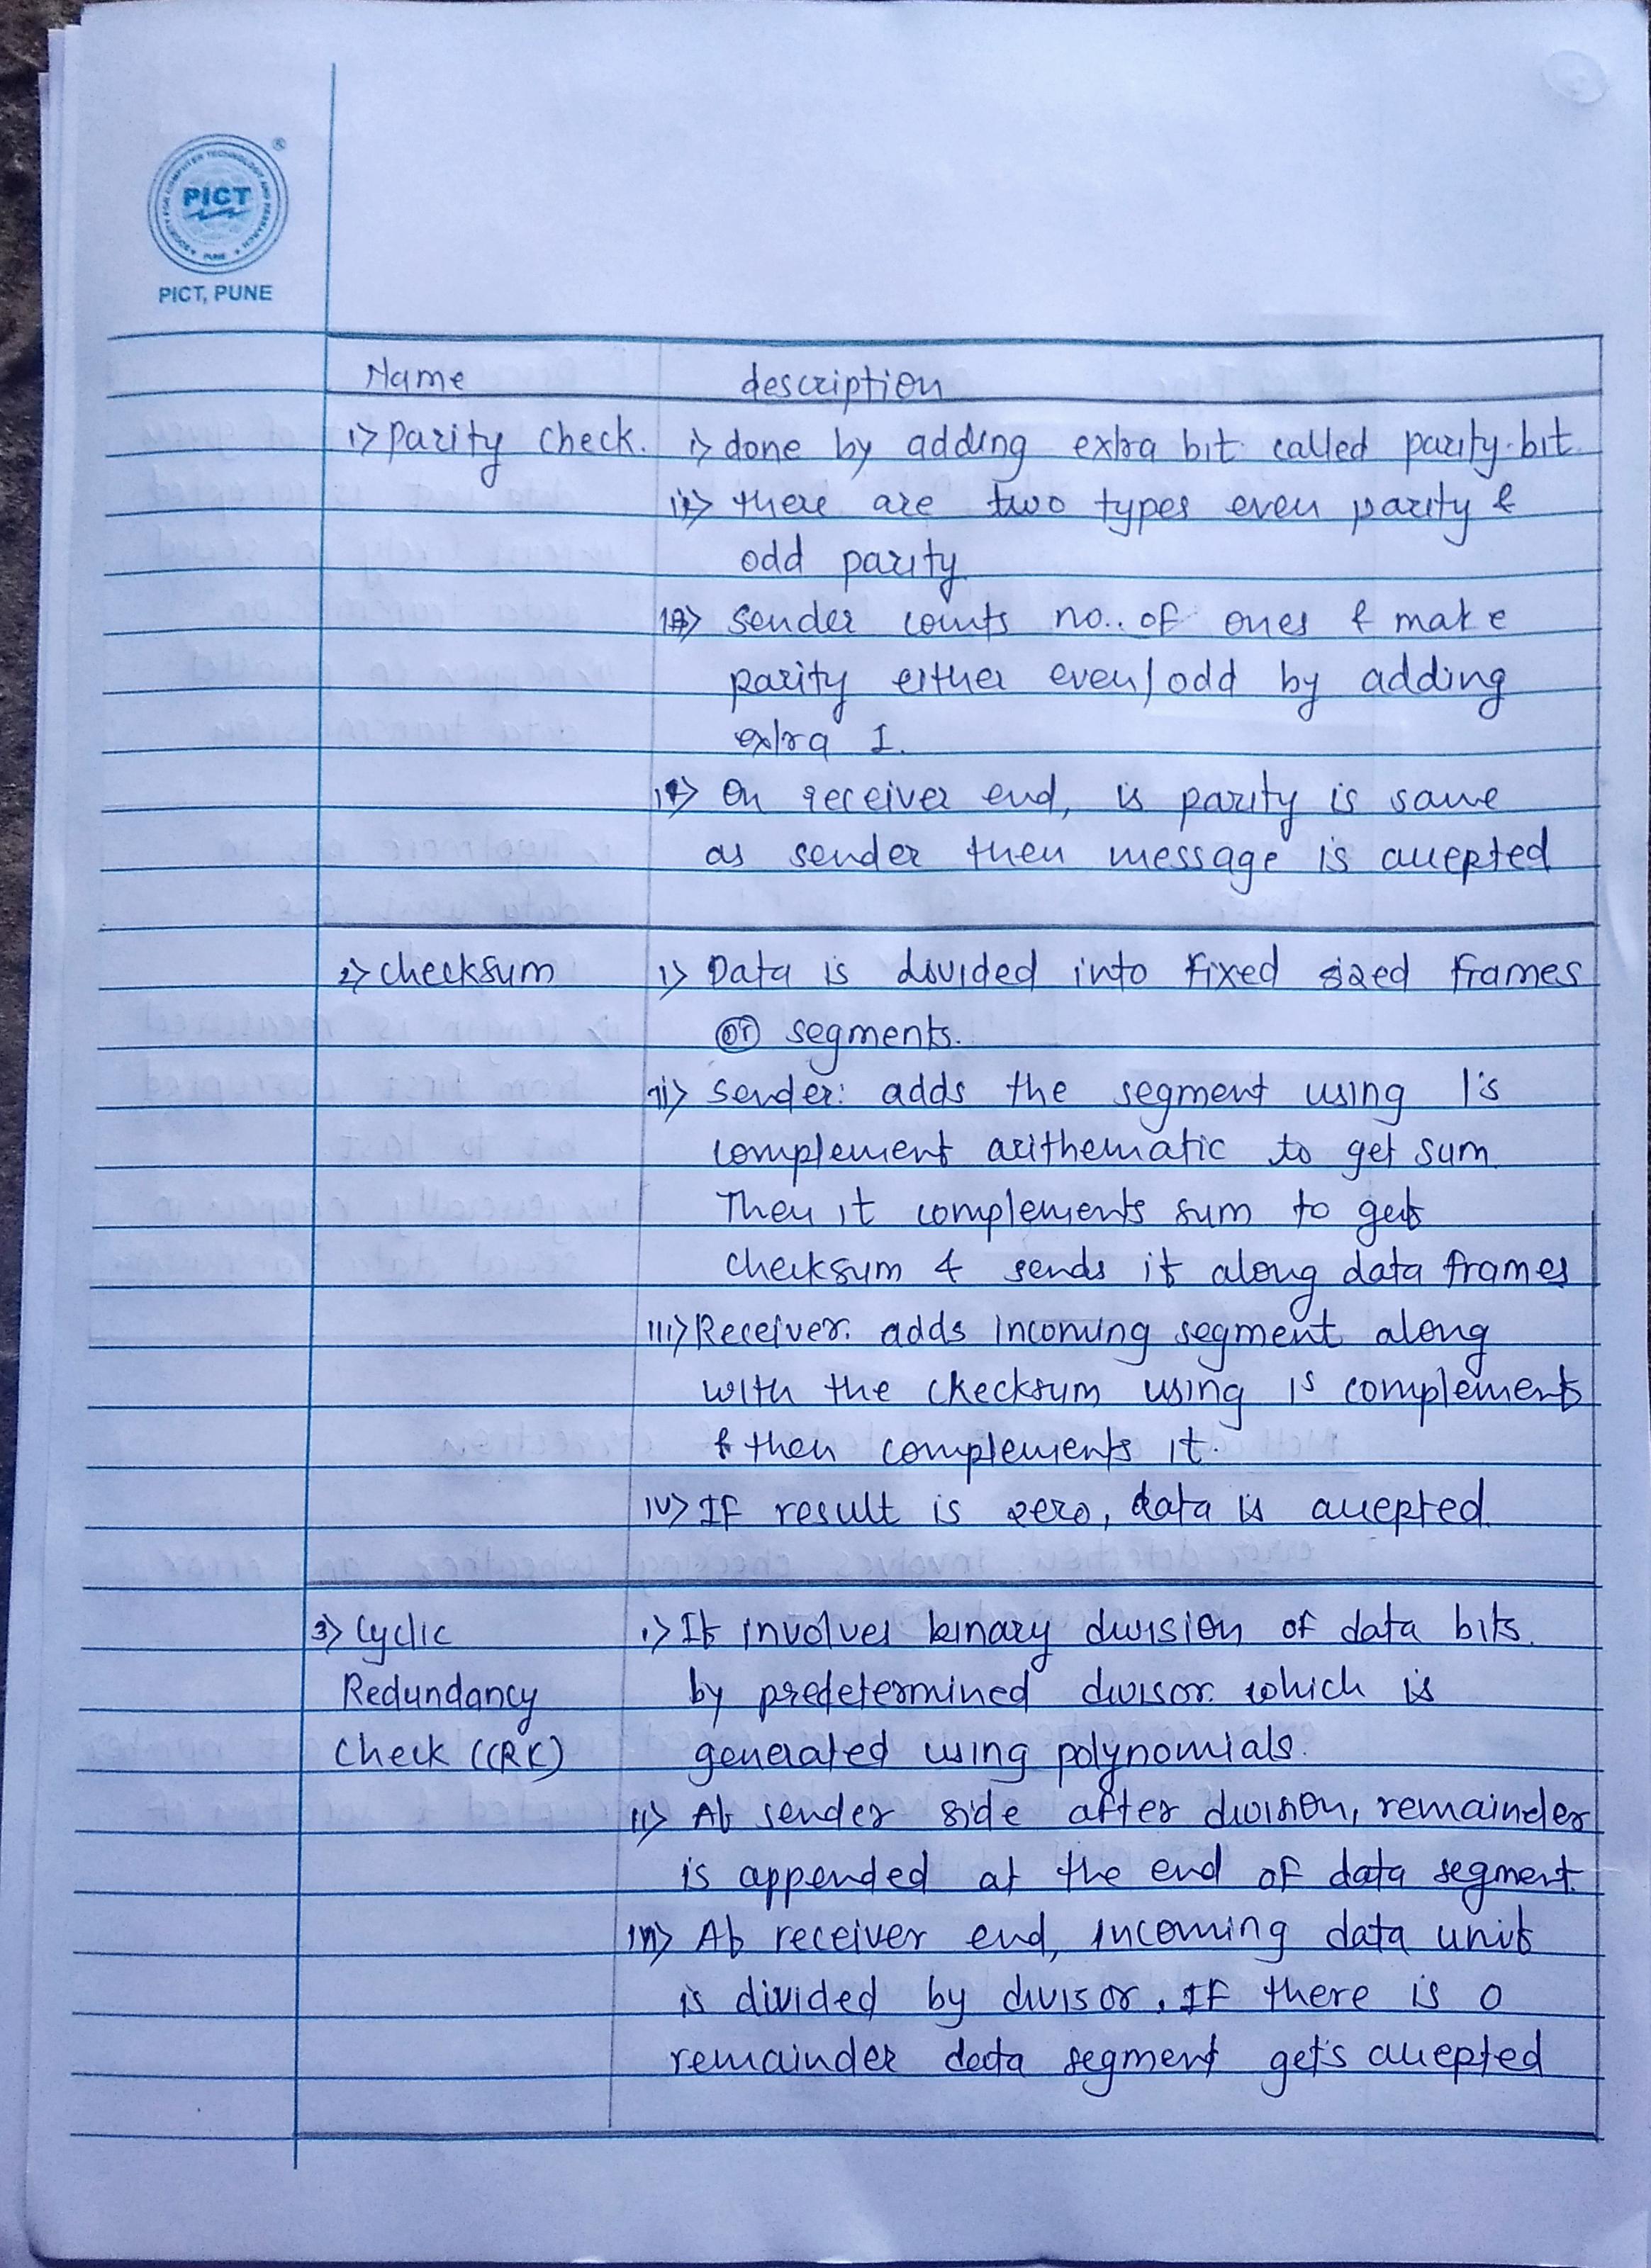 SOCIETY FOR COMPUTER TECHNOLOGY AND RESEARCH
PICT
PUNE
®
PICT, PUNE
Name description
1> parity check. i> done by adding extra bit called parity bit
ii> there are two types even parity &
odd parity
iii> Sender counts no. of ones & make
parity either even/odd by adding
extra 1.
iv> On receiver end, is parity is same
as sender then message is accepted
2> checksum i> Data is divided into fixed sized frames
or segments.
ii> Sender: adds the segment using 1's
complement arithematic to get sum.
Then it complements sum to get
checksum & sends it along data frames
iii> Receiver: adds incoming segment along
with the checksum using 1s complement
& then complements it.
iv> If result is zero, data is accepted.
3> Cyclic i> It involves binary division of data bits.
Redundancy by predetermined divisor which is
Check (CRC) generated using polynomials.
ii> At sender side after division, remainder
is appended at the end of data segment.
iii> At receiver end, incoming data unit
is divided by divisor. If there is 0
remainder data segment get's accepted